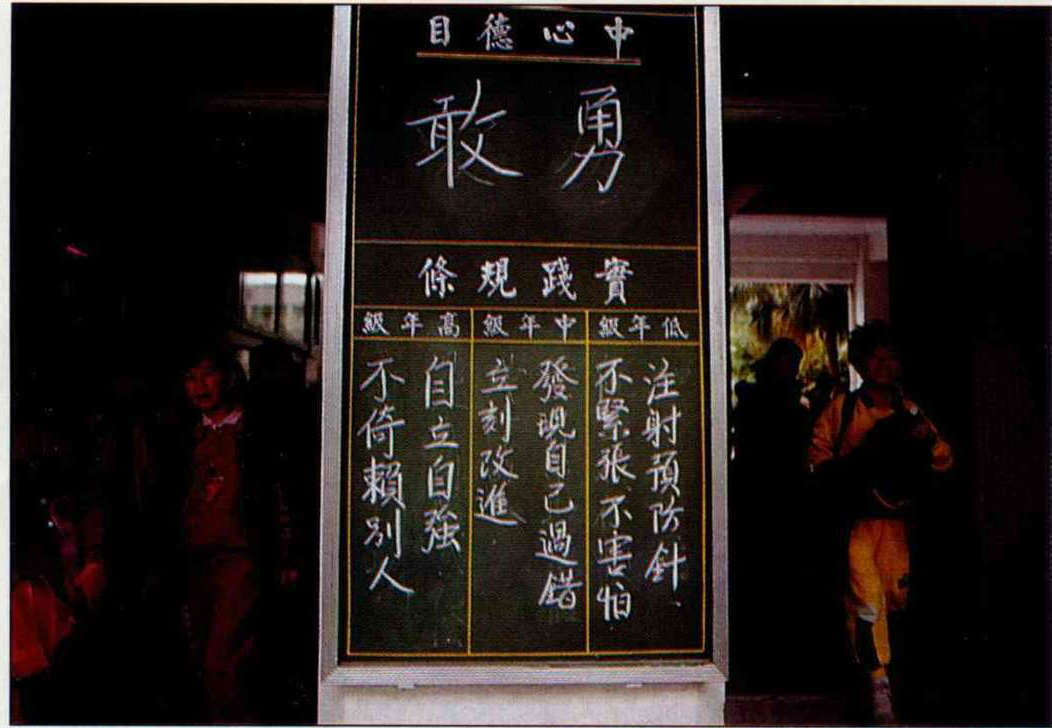 中心德目
勇敢
實踐規條
低年級
注射預防針、
不緊張不害怕
中年級
發現自己過錯
立刻改進
高年級
自立自強
不倚賴別人